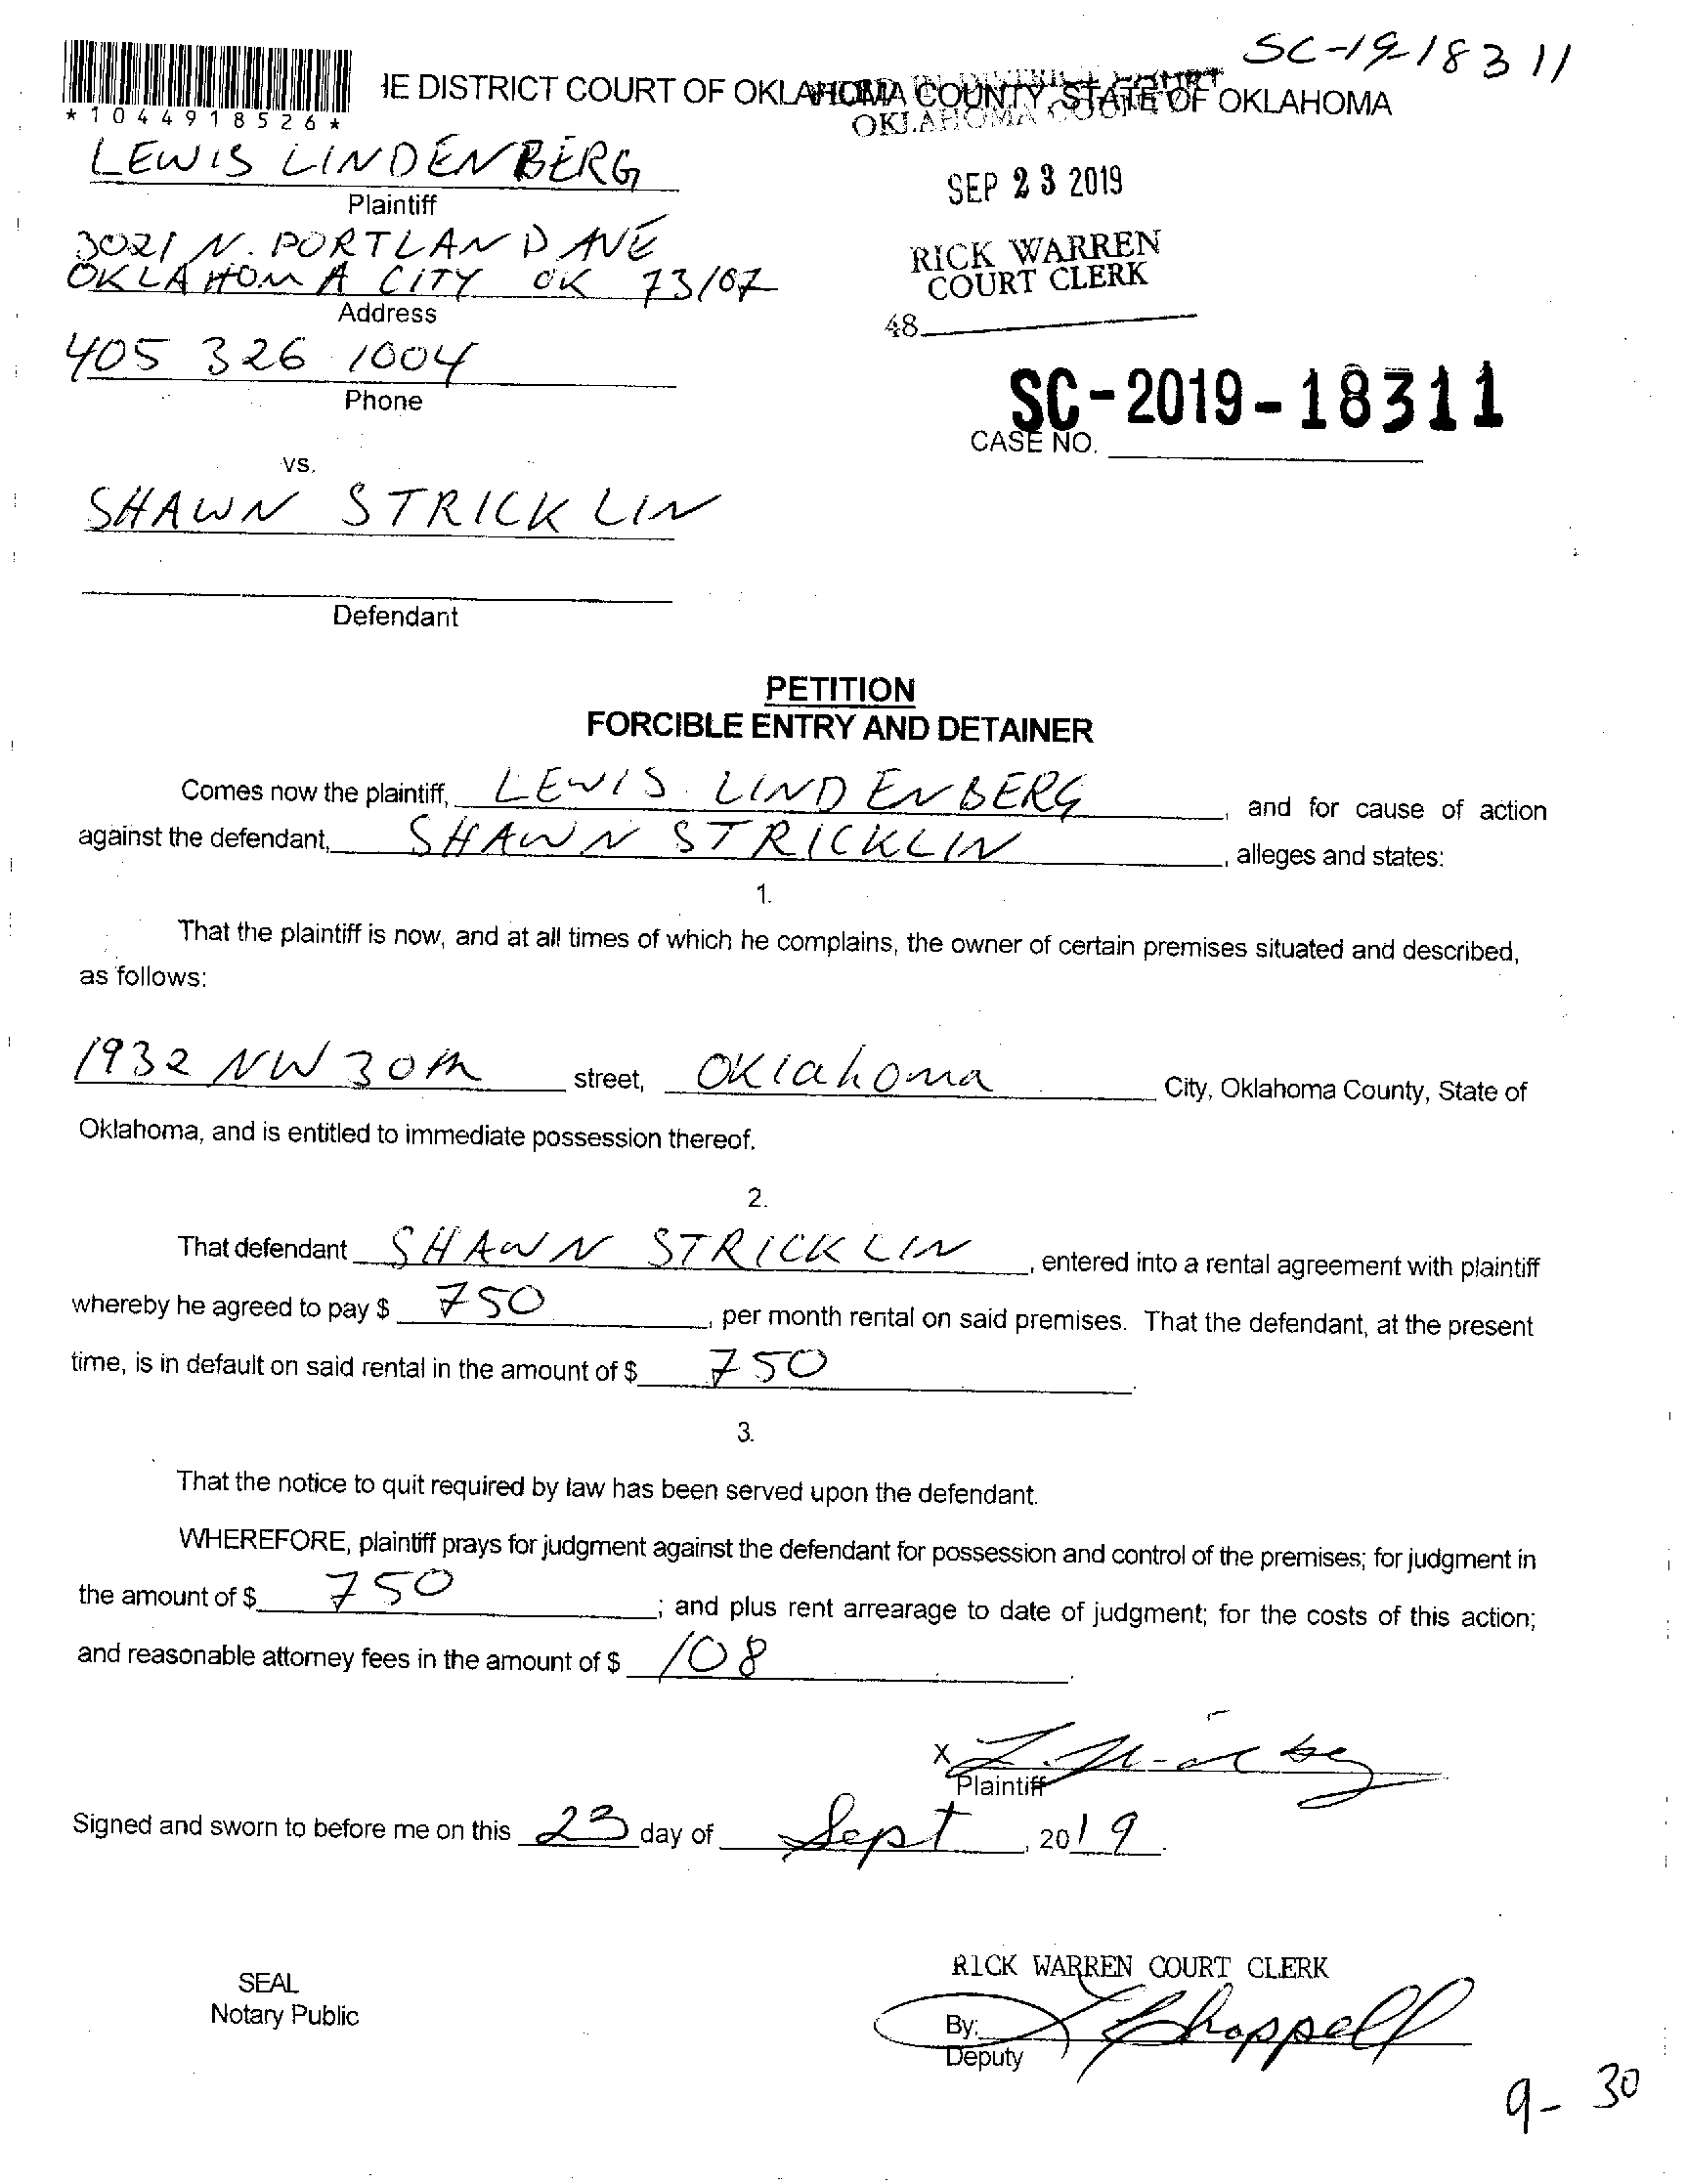 SC-19-18311
IE DISTRICT COURT OF OKLAHOMA COUNTY, STATE OF OKLAHOMA
OKLAHOMA COUNTY
*1044918526*
LEWIS LINDENBERG
Plaintiff
SEP 23 2019
3021 N. PORTLAND AVE
OKLAHOMA CITY OK 73107
Address
RICK WARREN
COURT CLERK
48
405 326 1004
Phone
SC-2019-18311
CASE NO.
vs.
SHAWN STRICKLIN
Defendant
PETITION
FORCIBLE ENTRY AND DETAINER
Comes now the plaintiff, LEWIS LINDENBERG, and for cause of action
against the defendant, SHAWN STRICKLIN, alleges and states:
1.
That the plaintiff is now, and at all times of which he complains, the owner of certain premises situated and described,
as follows:
1932 NW 30th street, Oklahoma City, Oklahoma County, State of
Oklahoma, and is entitled to immediate possession thereof.
2.
That defendant SHAWN STRICKLIN, entered into a rental agreement with plaintiff
whereby he agreed to pay $ 750, per month rental on said premises. That the defendant, at the present
time, is in default on said rental in the amount of $ 750.
3.
That the notice to quit required by law has been served upon the defendant.
WHEREFORE, plaintiff prays for judgment against the defendant for possession and control of the premises; for judgment in
the amount of $ 750; and plus rent arrearage to date of judgment; for the costs of this action;
and reasonable attorney fees in the amount of $ 108.
X
Plaintiff
Signed and sworn to before me on this 23 day of Sept, 2019.
RICK WARREN COURT CLERK
SEAL
Notary Public
By: Chappell
Deputy
9-30